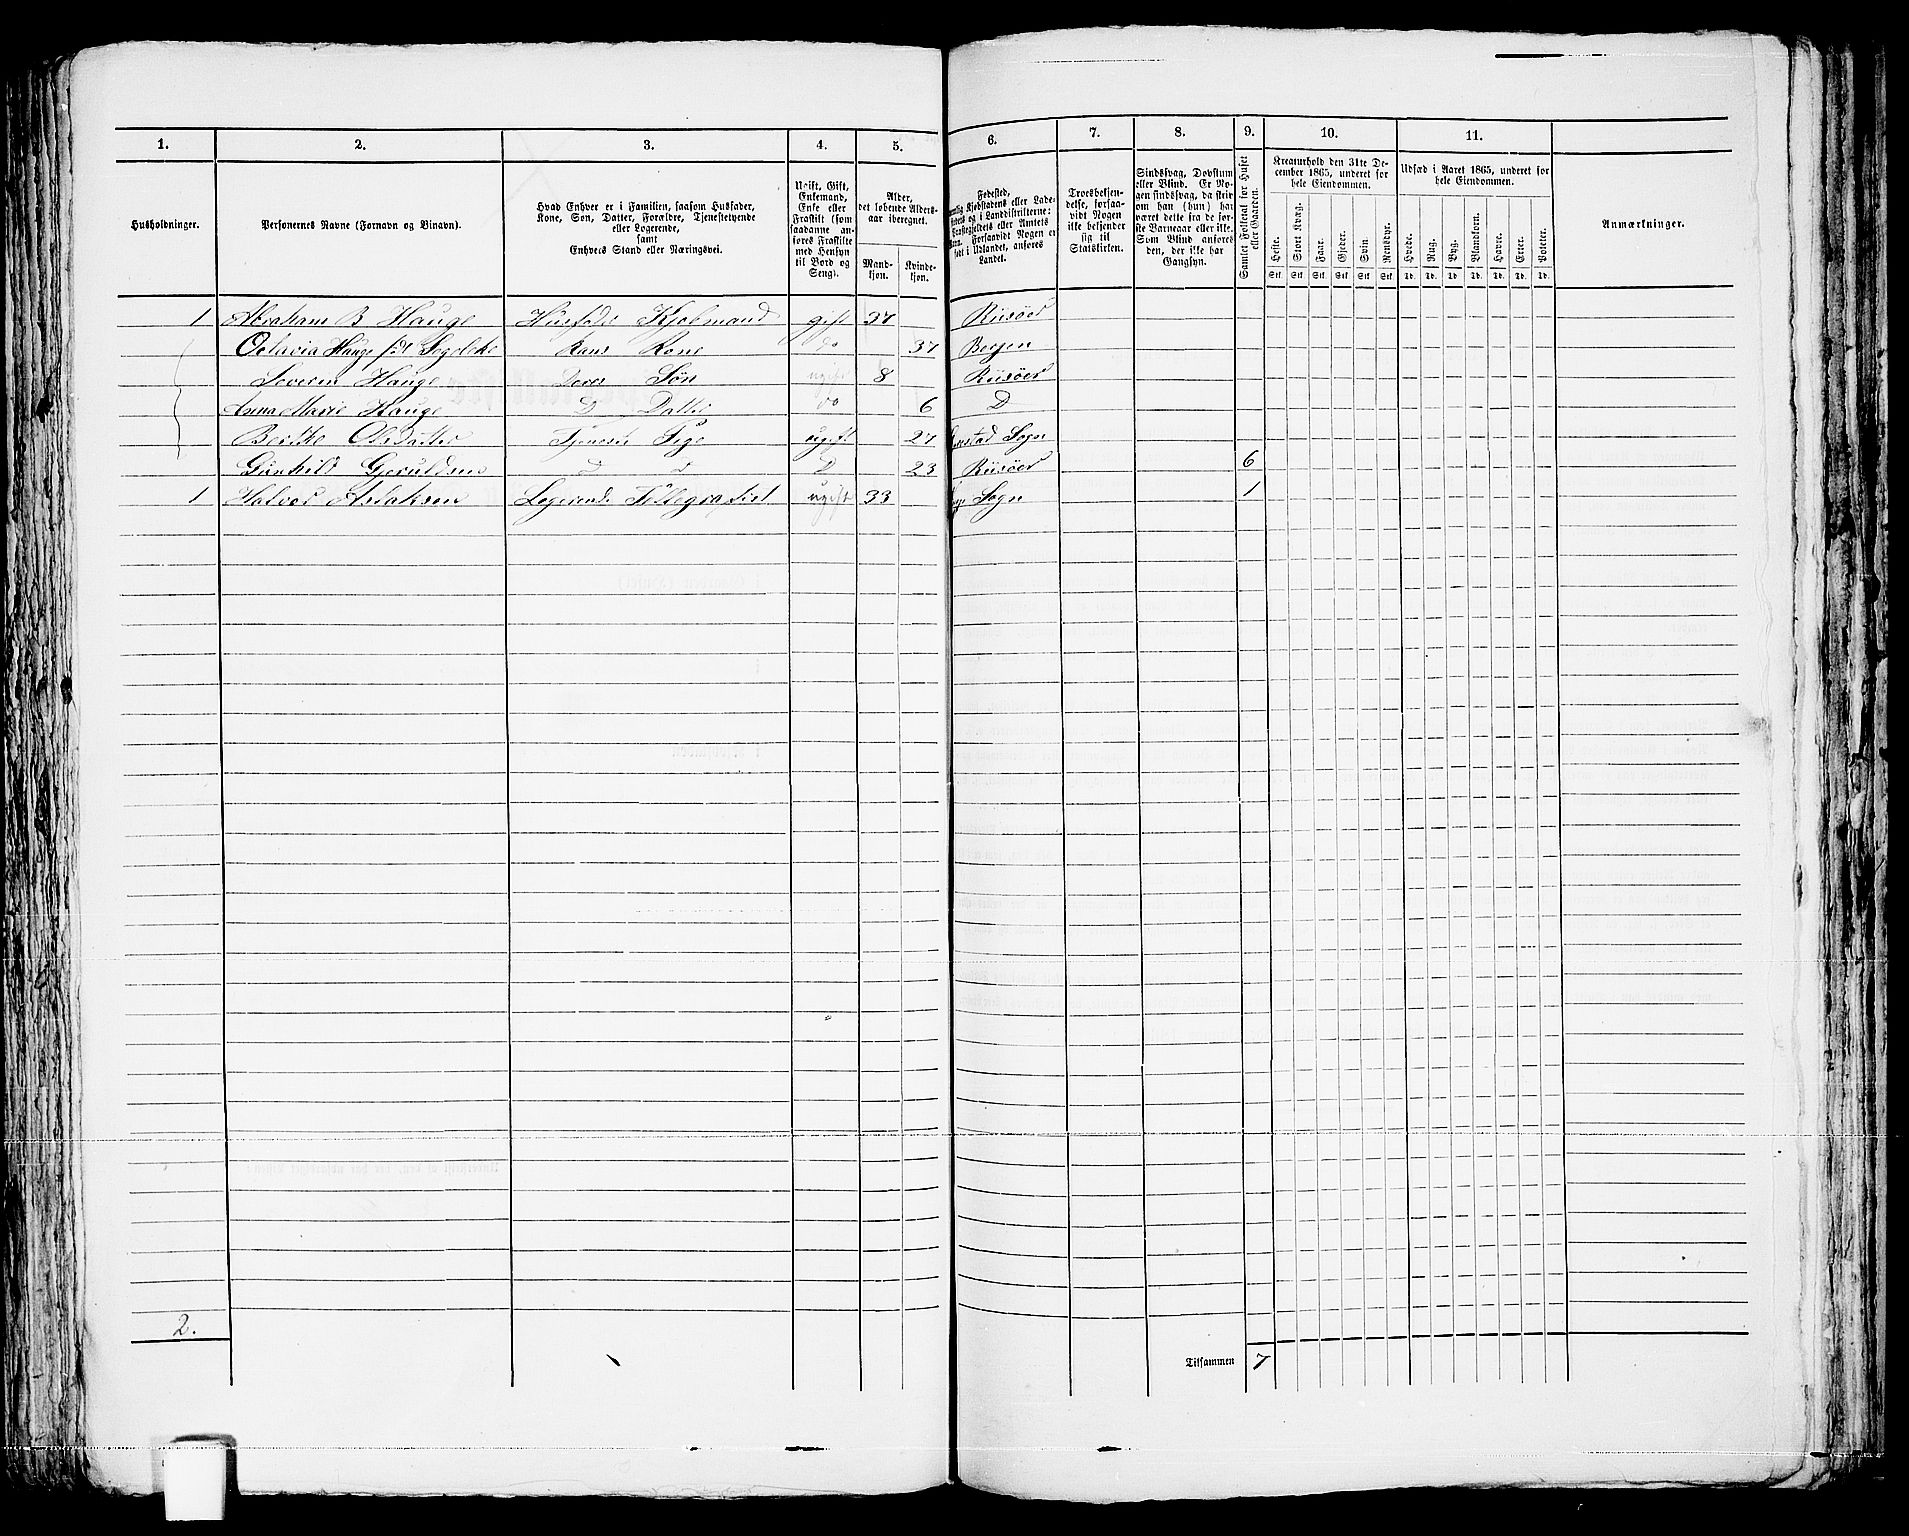 1. 2. 3. 4. 5. 6. 7. 8. 9. 10. 11.
Husholdninger.
Personernes Navne (Fornavn og Binavn).
Hvad Enhver er i Familien, saasom Husfader, Kone, Søn, Datter, Forældre, Tjenestetyende eller Logerende, samt Enhvers Stand eller Næringsvei.
Ugift, Gift, Enkemand, Enke eller Fraskilt (som saadanne anføres Fraskilte med Hensyn til Bord og Seng).
Alder, det løbende Aldersaar iberegnet.
Mandkjøn. Kvindekjøn.
Fødested, Kjøbstadens eller Ladestedets og i Landdistrikterne: Præstegjeldets eller Amtets Navn. Forsaavidt Nogen er født i Udlandet, anføres Landet.
Troesbekjendelse, forsaavidt Nogen ikke bekjender sig til Statskirken.
Sindssvag, Døvstum eller Blind. Er Nogen sindssvag, da skrives om han (hun) har været dette fra de første Barneaar eller ikke. Som Blind anføres den, der ikke har Gangsyn.
Samlet Folketal for Huset eller Gaarden.
Kreaturhold den 31te December 1865, underet for hele Eiendommen.
Heste. Stort Kvæg. Faar. Gjeder. Svin. Rensdyr.
Udsæd i Aaret 1865, underet for hele Eiendommen.
Hvede. Rug. Byg. Blandkorn. Havre. Erter. Poteter.
Stk. Stk. Stk. Stk. Stk. Stk. Td. Td. Td. Td. Td. Td. Td.
Anmærkninger.
1 Abraham B Hauge Husfader Kjøbmand gift 37 Riisøer
Octavia Hauge født Segelcke Hans Kone do 37 Bergen
Severin Hauge Deres Søn ugift 8 Riisøer
Anna Marie Hauge D Datter do 6 D
Berthe Olsdatter Tjenest Pige ugift 27 Sogn
Gunhild Gjeruldsen D D D 23 Riisøer 6
1 Halvor Aslaksen Logerende Tellegrafist ugift 33 Sogn 1
2.
Tilsammen 7